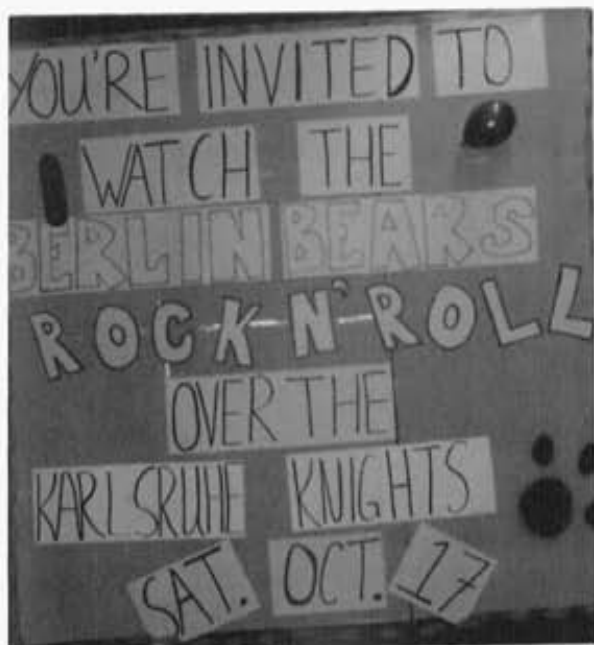 YOU'RE INVITED TO
WATCH THE
BERLIN BEARS
ROCK N' ROLL
OVER THE
KARLSRUHE KNIGHTS
SAT. OCT. 17